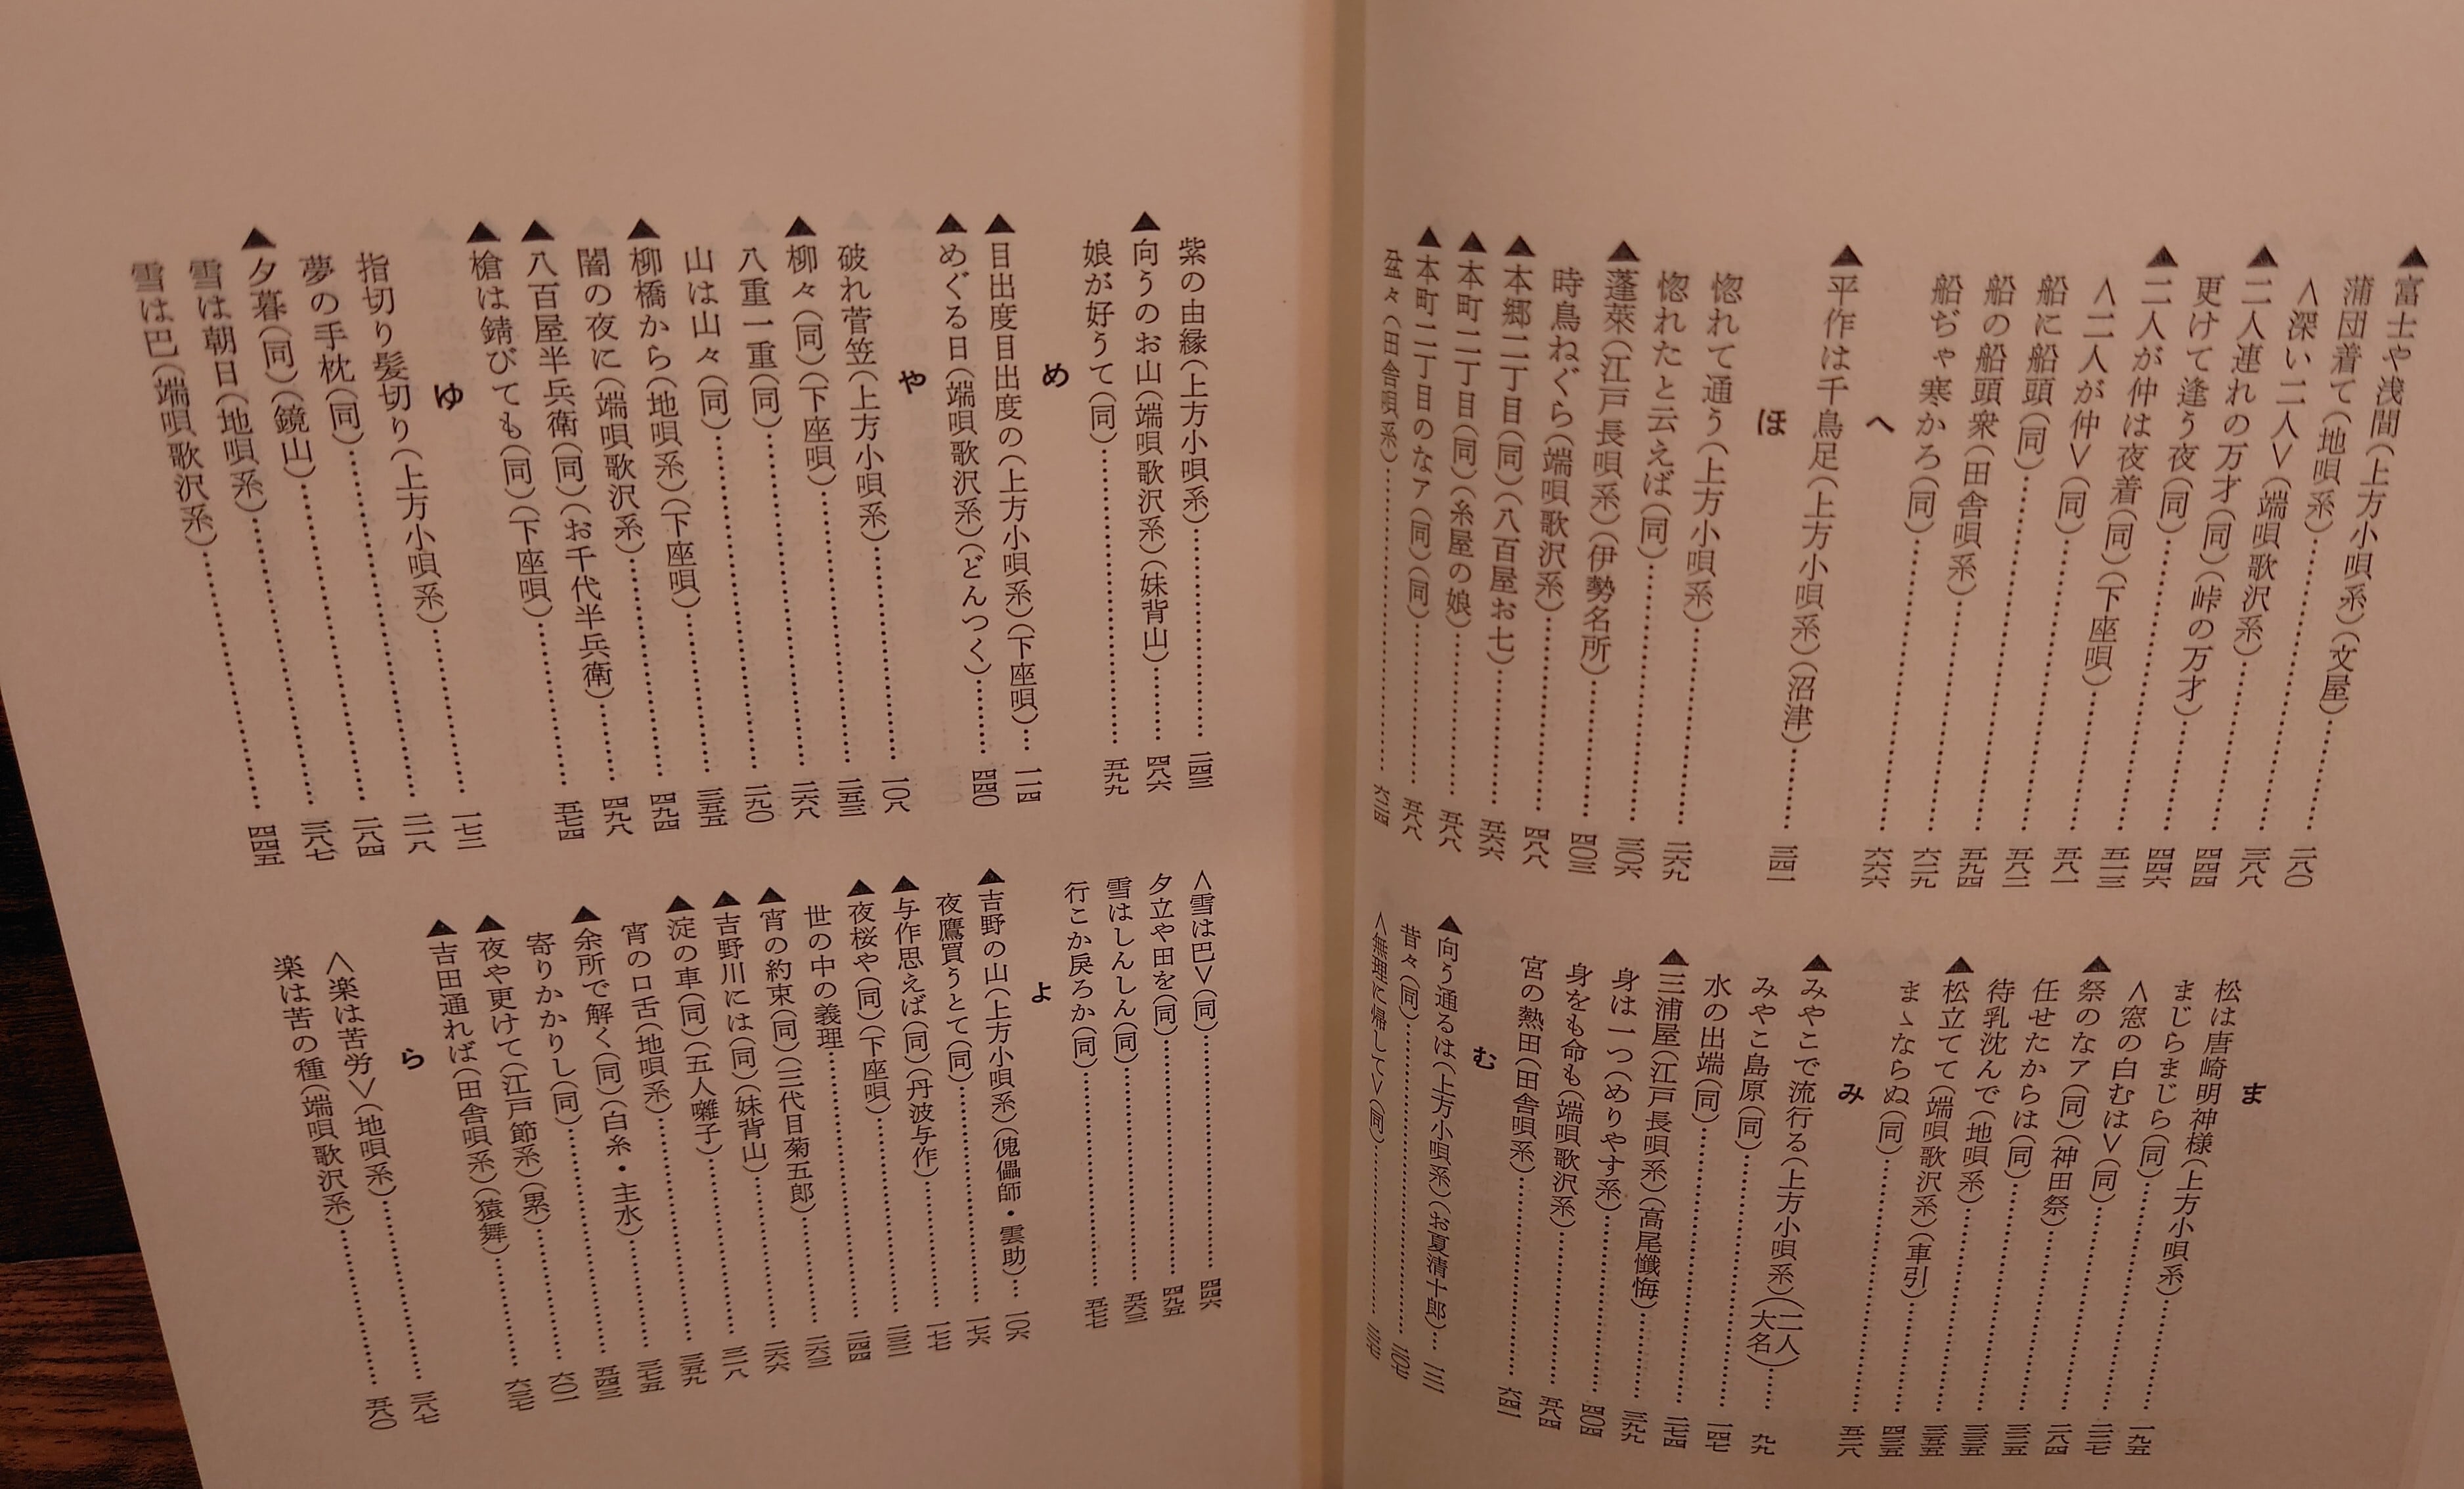 ▲富士や浅間(上方小唄系)(文屋)
蒲団着て(地唄系)……二八〇
<深い二人>(端唄歌沢系)……三八八
▲二人連れの万才(同)(峠の万才)……四四四
更けて逢う夜(同)……四四六
▲二人が仲は夜着(同)(下座唄)……五一三
<二人が仲>(同)……五八一
船に船頭(同)……五八二
船の船頭衆(田舎唄系)……五九四
船ぢゃ寒かろ(同)……六二九
へ……六六六
▲平作は千鳥足(上方小唄系)(沼津)……三四一
ほ
惚れて通う(上方小唄系)……二六九
惚れたと云えば(同)……三〇六
▲蓬萊(江戸長唄系)(伊勢名所)……四〇三
時鳥ねぐら(端唄歌沢系)……四八八
▲本郷二丁目(同)(八百屋お七)……五六六
▲本町二丁目(同)(糸屋の娘)……五八八
▲本町二丁目のなァ(同)(同)……五八八
盆々(田舎唄系)……六二四
ま
松は唐崎明神様(上方小唄系)……一九五
まじらまじら(同)……二三七
<窓の白むは>(同)……二八四
▲祭のなア(同)(神田祭)……三三五
任せたからは(同)……三三五
待乳沈んで(地唄系)……三五五
▲松立てて(端唄歌沢系)(車引)……四三五
まゝならぬ(同)……五三八
み
▲みやこで流行る(上方小唄系)(二人大名)……九九
みやこ島原(同)……一四七
水の出端(同)……二七四
▲三浦屋(江戸長唄系)(高尾懺悔)……三九九
身は一つ(めりやす系)……四〇四
身をも命も(端唄歌沢系)……五八四
宮の熱田(田舎唄系)……六四一
む
▲向う通るは(上方小唄系)(お夏清十郎)…一三一
昔々(同)……二〇七
<無理に帰して>(同)
紫の由縁(上方小唄系)……二四三
▲向うのお山(端唄歌沢系)(妹背山)……四八六
娘が好うて(同)……五九九
め
▲目出度目出度の(上方小唄系)(下座唄)…一一四
▲めぐる日(端唄歌沢系)(どんつく)……四四〇
や
破れ菅笠(上方小唄系)……一〇八
▲柳々(同)(下座唄)……二五三
八重一重(同)……二六八
山は山々(同)……二九〇
▲柳橋から(地唄系)(下座唄)……三五五
闇の夜に(端唄歌沢系)……四九四
▲八百屋半兵衛(同)(お千代半兵衛)……四九八
▲槍は錆びても(同)(下座唄)……五七四
ゆ
指切り髪切り(上方小唄系)……一七三
夢の手枕(同)……二一八
▲夕暮(同)(鏡山)……二八四
雪は朝日(地唄系)……三八七
雪は巴(端唄歌沢系)……四四五
<雪は巴>(同)……四四六
夕立や田を(同)……四九五
雪はしんしん(同)……五六三
行こか戻ろか(同)……五七七
よ
▲吉野の山(上方小唄系)(傀儡師・雲助)…一〇六
夜鷹買うとて(同)……一七六
▲与作思えば(同)(丹波与作)……一七七
▲夜桜や(同)(下座唄)……二三二
世の中の義理……二四四
▲宵の約束(同)(三代目菊五郎)……二六三
▲吉野川には(同)(妹背山)……二六六
▲淀の車(同)(五人囃子)……三一八
宵の口舌(地唄系)……三五九
▲余所で解く(同)(白糸・主水)……三七五
寄りかかりし(同)……五四三
▲夜や更けて(江戸節系)(累)……六〇一
▲吉田通れば(田舎唄系)(猿舞)……六三七
ら
<楽は苦労>(地唄系)……三八七
楽は苦の種(端唄歌沢系)……五八〇